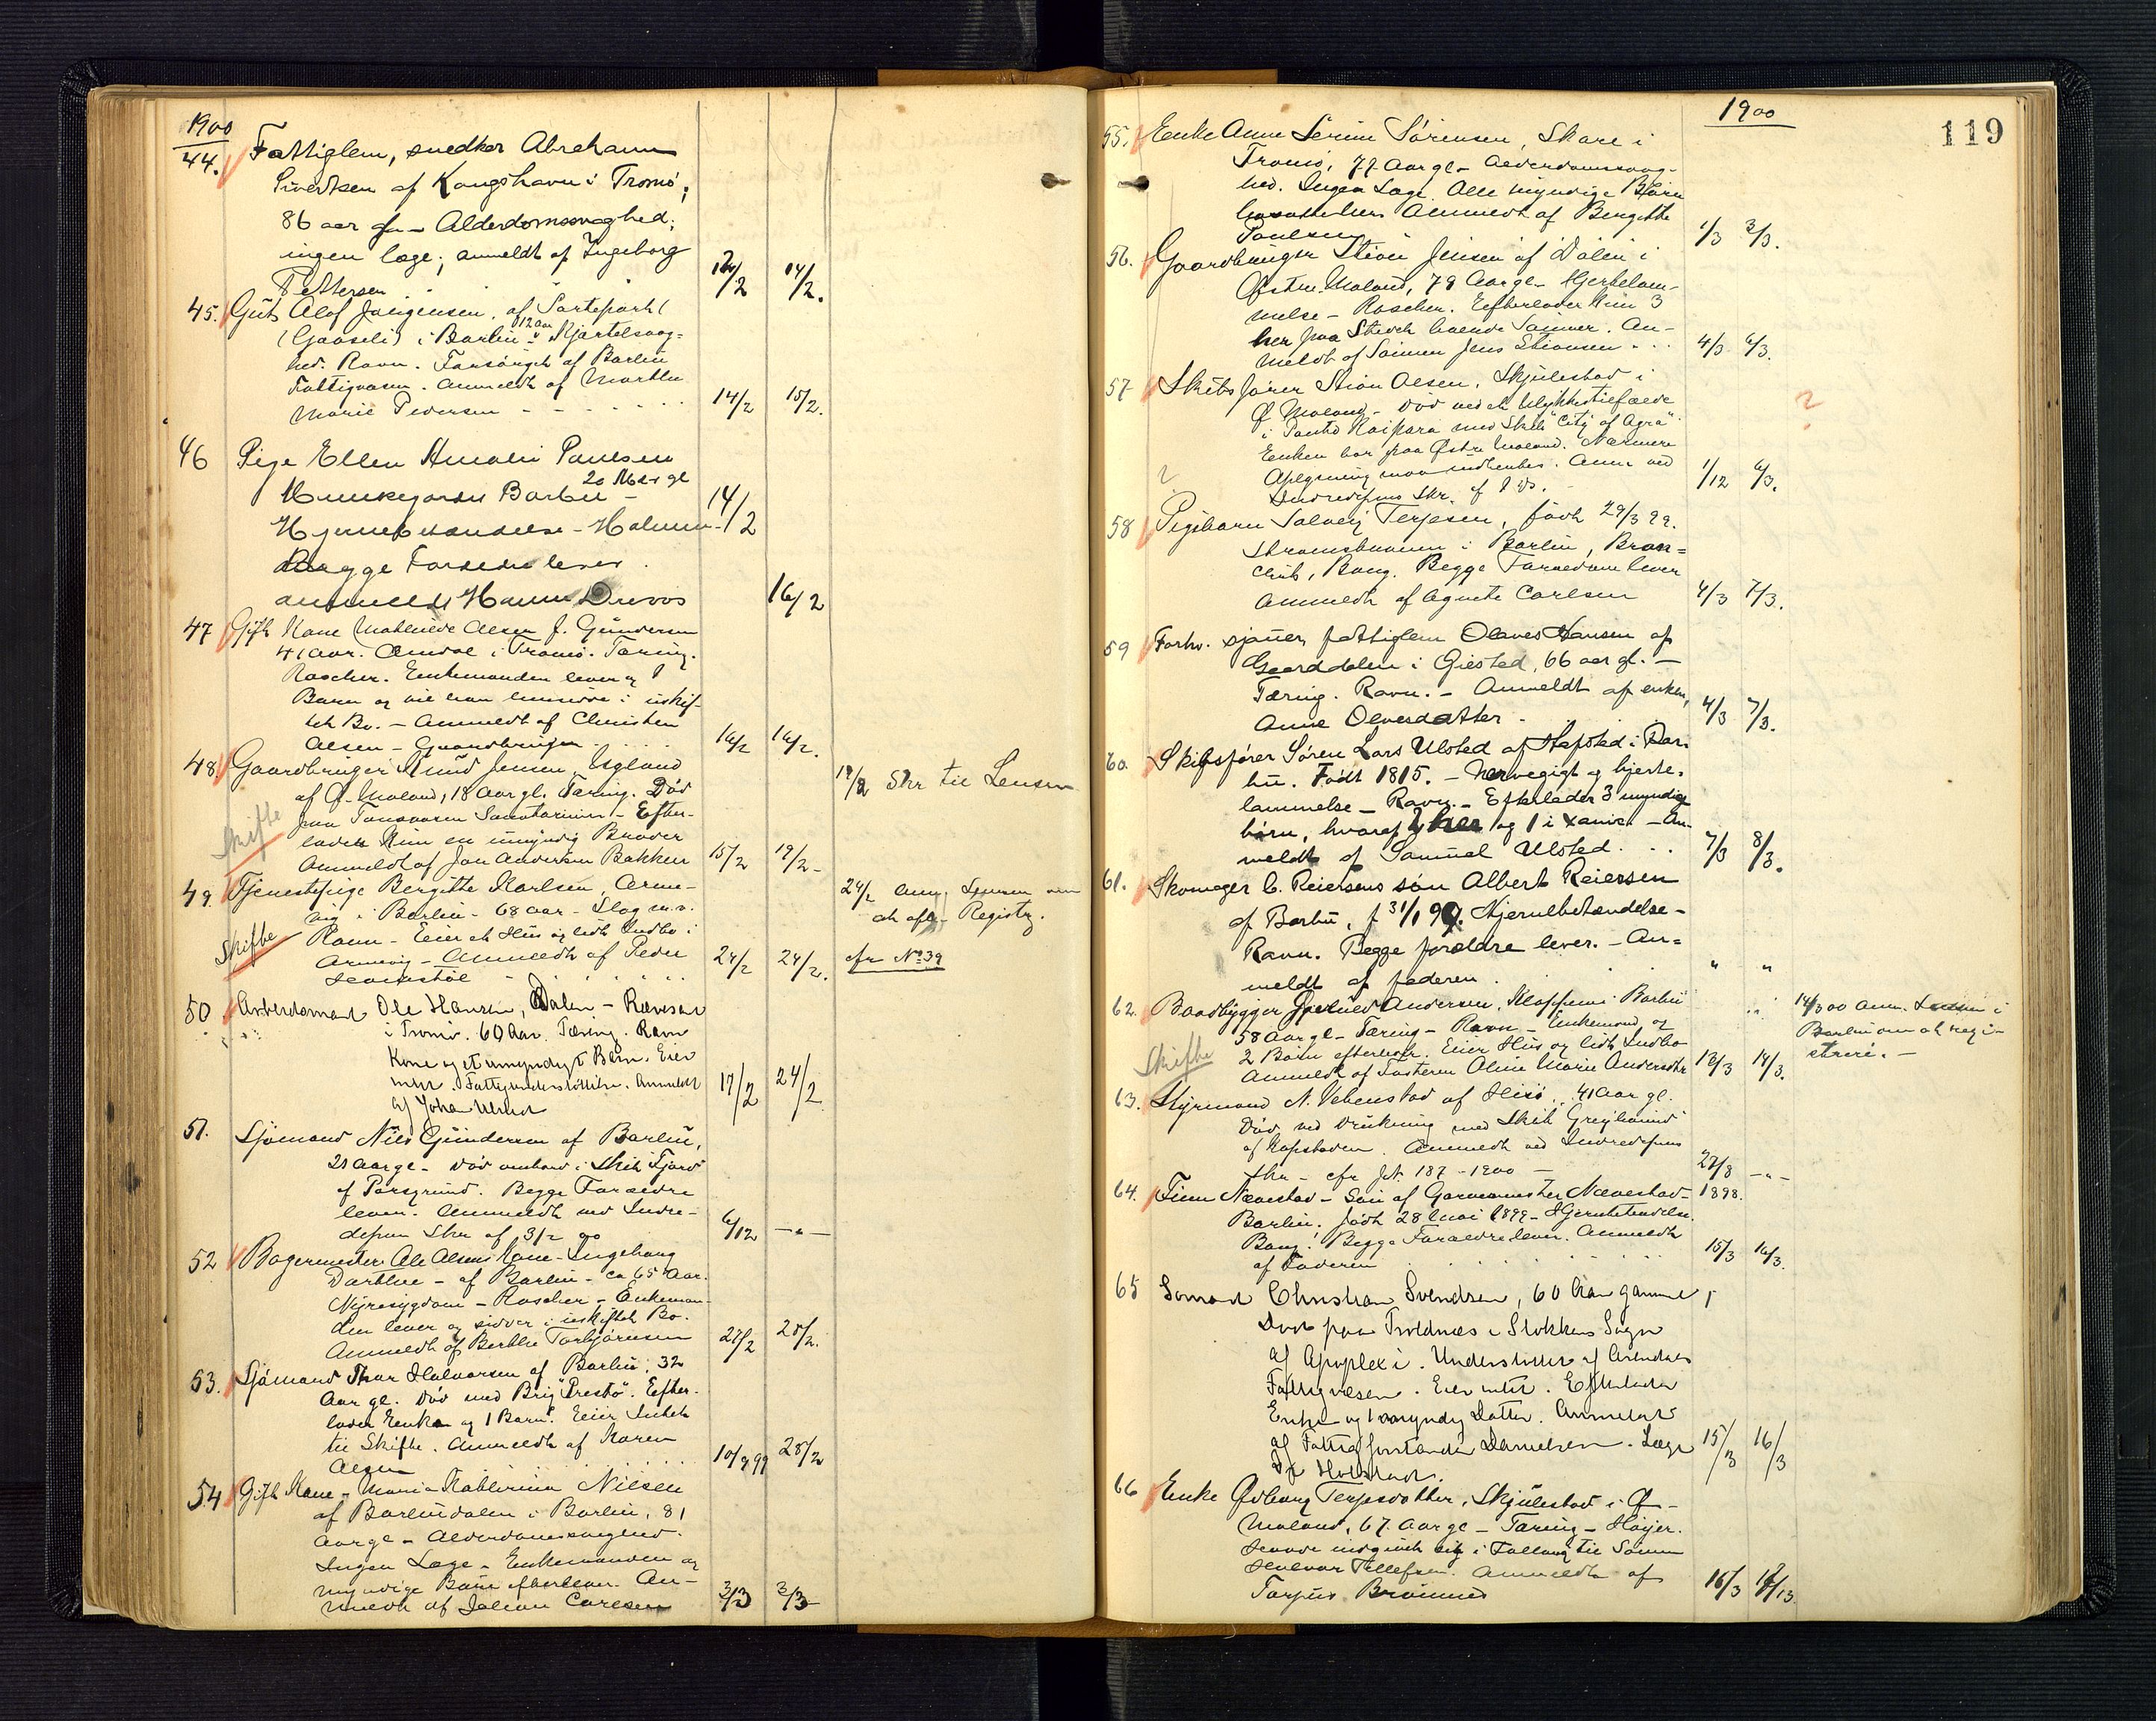 1900
44. Fattiglem, snedker Abraham
Sivertsen af Kongshavn i Tromö,
86 aar gl - Alderdomssvaghed;
ingen læge; anmeldt af Ingeborg
Pettersen 12/2 14/2.
45. Gut Olof Jörgensen, af
(Gaaseli) i Barbu - 12 aar Kjertelsvag-
hed. Ravn. Forsörget af Barbu
Fattigvæsen. Anmeldt af Marthe
Marie Pedersen - - - - 14/2 15/2.
46 Pige Ellen Amalie Paulsen
20 Mdr gl
Munkegarden Barbu - 14/2
Hjernebetændelse - Holmer
Begge Forældre lever.
anmeldt Hanna 16/2
47 Gift Kone Mathilde Olsen f. Gundersen
41 aar. Omdal i Tromö. Tæring.
Roscher. Enkemanden lever og 1
Barn og vil han hensidde i uskif-
tet Bo. - Anmeldt af Christen
Olsen - Gaardbruger. . . . . 16/2 16/2.
48 Gaardbruger Knud Jensen Esgland
af Ö. Moland, 18 aar gl. Tæring. Död
paa Tonsaasen Sanatorium - Efter-
lader kun en umyndig Broder
Anmeldt af Jon Andersen Bakken 15/2 19/2 -
Skifte
19/2 Skr til Lensm
49. Tjenestepige Bergitte Karlsen, Arne-
vig i Barbu - 68 aar - Slag m.v.
Ravn - Eier et Hus og lidt Indbo i
Arnevig - Anmeldt af Peder
24/2 24/2.
Skifte
24/2 anm. Lensm om
at afh. Registr.
cfr No 39
50 Arbeidsmand Ole Hansen, Dalen - Rævesand
i Tromö. 60 Aar. Tæring. Ravn
Kone og et umyndigt Barn. Eier
intet. Fattigunderstöttelse. Anmeldt
af Johan Ulsted 17/2 24/2
51. Sjömand Nils Gundersen af Barbu,
21 Aar gl - död ombord i Skib "Fjord"
af Porsgrund. Begge Forældre
lever. Anmeldt ved Indre-
depnn Skr af 3/2 00 6/12 -"-
52 Bagermester Ole Olsens Kone - Ingeborg
Dorthea - af Barbu - ca 65 Aar.
Nyresygdom - Roscher - Enkeman-
den lever og sidder i uskiftet Bo.
Anmeldt af Berthe Torbjörnsen 27/2 28/2.
53. Sjömand Thor Halvorsen af Barbu. 32
Aar gl. Död med Brig "Prestö". Efter-
lader Enke og 1 Barn. Eier Intet
til Skifte. Anmeldt af Karen
Olsen 10/9 99 28/2
54 Gift Kone - Maria Kathrina Nilsen
af Barbudalen i Barbu, 81
Aar gl - Alderdomssvaghed.
Ingen Læge - Enkemanden og
myndige Börn efterlever. An-
meldt af Carlsen 3/3 3/3 -
1900
119
55. Enke Anne Serine Sörensen, Skare i
Tromö, 77 Aar gl - Alderdomssvag-
hed. Ingen Læge. Alle myndige Börn
bosatte her. Anmeldt af Bergitte
Paulsen 1/3 2/3.
56. Gaardbruger Stian Jensen af Dalen i
Östre Moland, 79 Aar gl - Hjertelam-
melse - Roscher. Efterlader kun 3
her paa Stedet boende Sönner. An-
meldt af Sönnen Jens Stiansen. . . 4/3 6/3.
57 Skibsförer Stian Olsen, Skjulestad i
Ö Moland - död ved et Ulykkestilfælde
i Kaipara med Skib "City of Agra"
Enken bor paa Östre Moland. Nærmere
Oplysning maa indhentes. Anm ved
Indredepns Skr. 1/12 6/3.
?
?
58 Pigebarn Solveig Terjesen, födt 29/3 99.
Strömsbunen i Barbu, Bron=
chit, Bang. Begge Forældre lever
Anmeldt af Agnete Carlsen 4/3 7/3.
59 Forhv. sjöuer, fattiglem Olaves Hansen af
Gaarddalen i Öiestad, 66 aar gl. -
Tæring. Ravn. - Anmeldt af enken,
Anne Olvesdatter. 4/3 7/3.
60. Skibsförer Sören Lars Ulsted af Hafsted i Bar-
bu. Födt 1815. - Nervegigt og hjerte-
lammelse - Ravn. - Efterlader 3 myndige
börn, hvoraf 2 her og 1 i - An-
meldt af Samuel Ulsted. . . . 7/3 8/3.
61. Skomager C. Reiersens sön Albert Reiersen
af Barbu, f 31/1 99. Hjernebetændelse -
Ravn. Begge forældre lever. - An=
meldt af faderen. " "
62. Baadbygger Andersen, Kloppene i Barbu
58 aar gl - Tæring - Ravn - Enkemand og
2 Börn efterlever. Eier Hus og lidt Indbo
Anmeldt af Söstren Oline Marie Andersdtr 13/3 14/3.
Skifte
14/3 00 anm. Lensm i
Barbu om at regi-
strere. -
63. Styrmand N. Vehenstad af Hisö, 41 Aar gl.
Död ved Drukning med Skib "Greyhound"
af Kapstaden. Anmeldt ved Indredepns
Skr - cfr Jrl. 187 - 1900 - 27/8 -"-
1898.
64. Finn Nævestad - Sön af Garvermester Nævestad -
Barbu. födt 28 Mai 1899 - Hjernebetændelse.
Bang. Begge Forældre lever. Anmeldt
af Faderen 15/3 16/3.
65 Sömand Christian Svendsen, 60 Aar gammel,
Död paa Troldnæs i Stokken Sogn
af Apoplexi. Understöttet af Arendals
Fattigvæsen. Eier intet. Efterlader
Enke og 1 myndig Datter. Anmeldt
af Fattigforstander Danielsen. Læge 15/3 16/3
Dr Holstad.
66 Enke Ödborg Terjesdatter, Skjulestad i Ö -
Moland, 67 Aar gl - Tæring - Höyer.
Havde indgivet sig i Follaug til Sönnen
Halvor Tellefsen. Anmeldt af
Torjus Brömnes 16/3